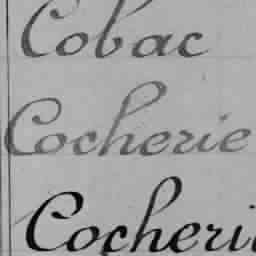 Cobac
Cocherie
Cocheri